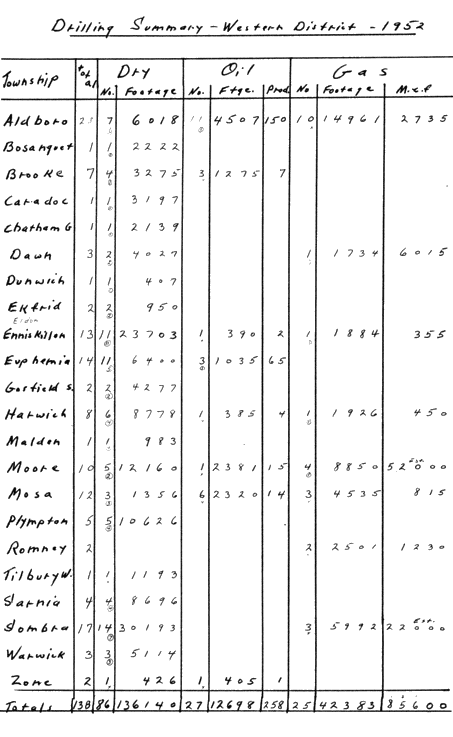 Drilling Summary - Western District - 1952
Dry Oil Gas
Township # of al No. Footage No. Ftge. Prod No Footage M.c.f
Aldboro 7 6018 11 4507 150 10 14961 2735
Bosanquet 1 1 2222
Brooke 7 4 3275 3 1275 7
Caradoc 1 1 3197
Chatham G 1 1 2139
Dawn 3 2 4027 1 1734 6015
Dunwich 1 1 407
Ekfrid 2 2 950
Enniskillen 13 11 23703 1 390 2 1 1884 355
Euphemia 14 11 6400 3 1035 65
Gosfield S. 2 2 4277
Harwich 8 6 8778 1 385 4 1 1926 450
Malden 1 1 983
Moore 10 5 12160 1 2381 15 4 8850 52000 Est.
Mosa 12 3 1356 6 2320 14 3 4535 815
Plympton 5 5 10626
Romney 2 2 2501 1230
Tilbury W. 1 1 1193
Sarnia 4 4 8696
Sombra 17 14 30193 3 5992 22000 Est.
Warwick 3 3 5114
Zone 2 1 426 1 405 1
Totals 138 86 136140 27 12698 258 25 42383 85600